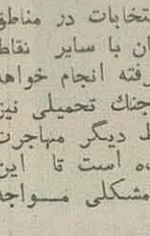 تخابات در مناطق
ان با سایر نقاط
رفته انجام خواهد
جنك تحمیلی نیز
دیگر مهاجرت
است تا این
مشکلی مـــواجه